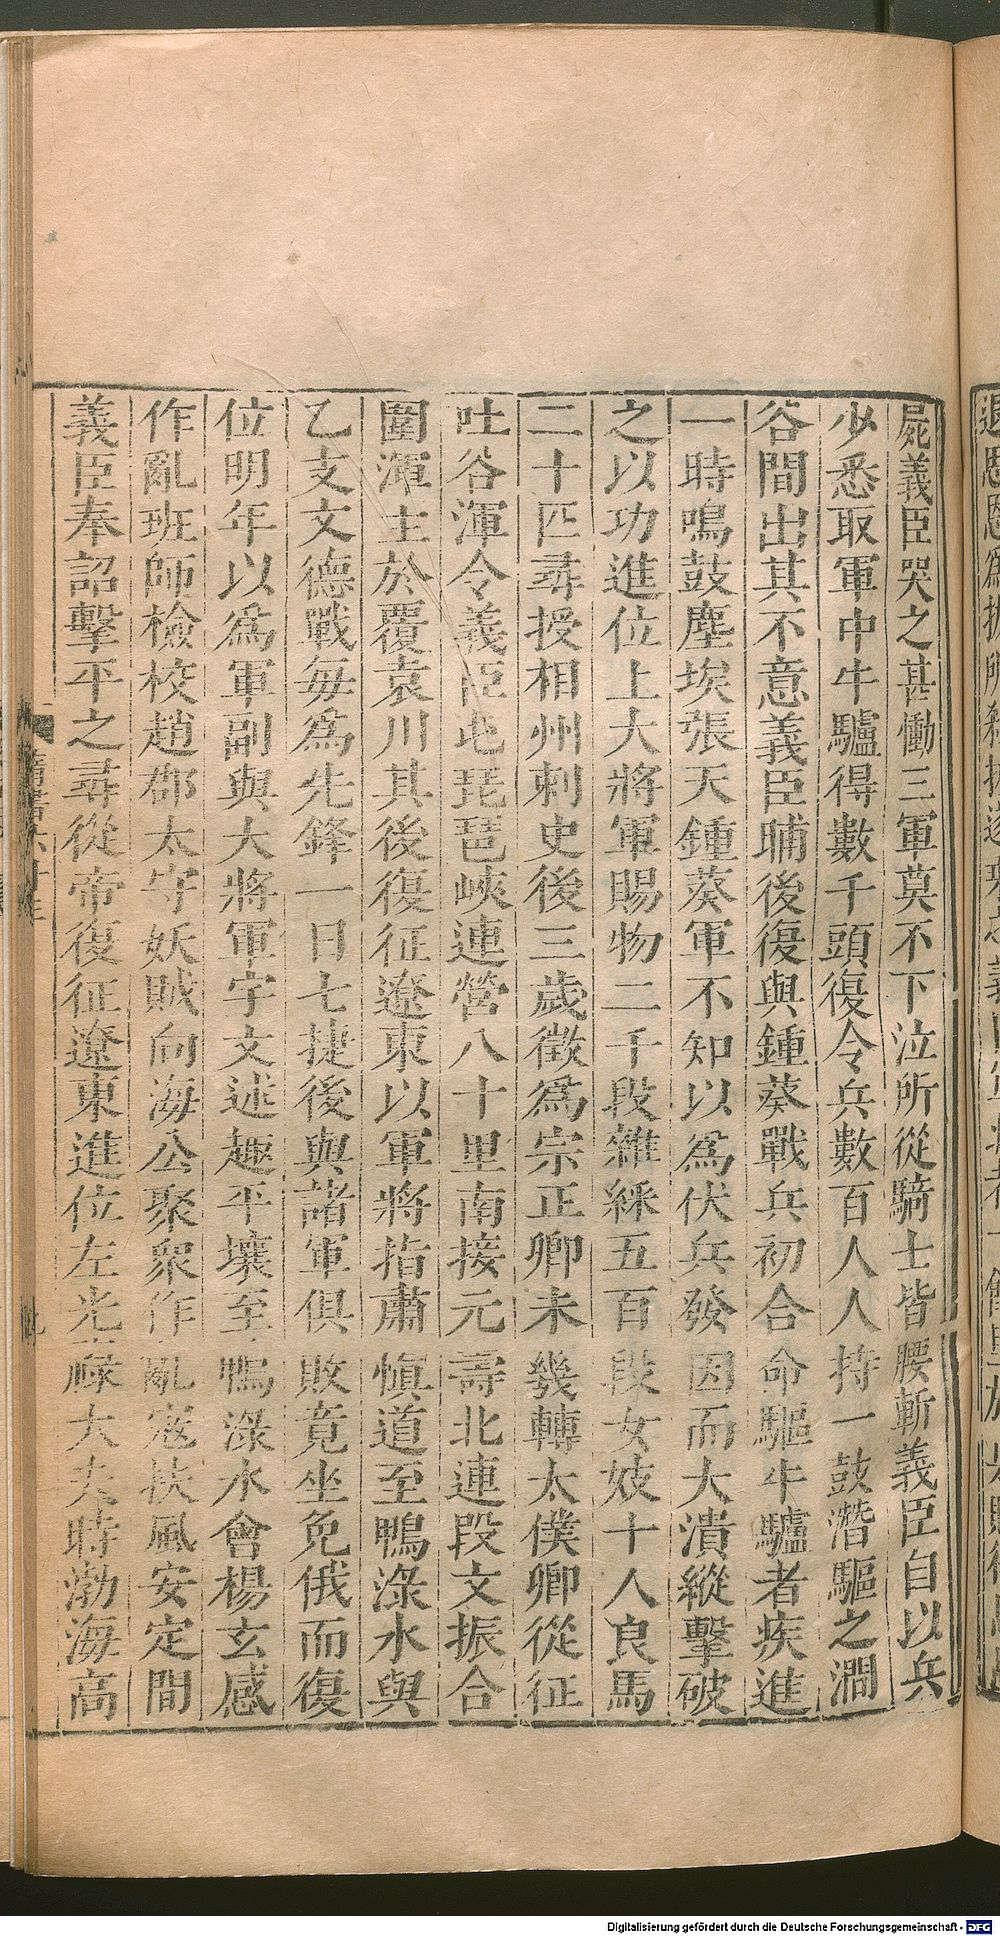 屍義臣哭之甚慟三軍莫不下泣所從騎士皆腰斬義臣自以兵
少悉取軍中牛驢得數千頭復令兵數百人人持一鼓潛驅之澗
谷間出其不意義臣晡後復與鍾葵戰兵初合命驅牛驢者疾進
一時鳴鼓塵埃張天鍾葵軍不知以爲伏兵發因而大潰縱擊破
之以功進位上大將軍賜物二千段雜綵五百段女妓十人良馬
二十匹尋授相州刺史後三歲徵爲宗正卿未幾轉太僕卿從征
吐谷渾令義臣屯琵琶峽連營八十里南接元壽北連段文振合
圍渾主於覆袁川其後復征遼東以軍將指肅慎道至鴨淥水與
乙支文德戰每爲先鋒一日七捷後與諸軍俱敗竟坐免俄而復
位明年以爲軍副與大將軍宇文述趣平壤至鴨淥水會楊玄感
作亂班師檢校趙郡太守妖賊向海公聚衆作亂寇扶風安定間
義臣奉詔擊平之尋從帝復征遼東進位左光祿大夫時渤海高
Digitalisierung gefördert durch die Deutsche Forschungsgemeinschaft - DFG